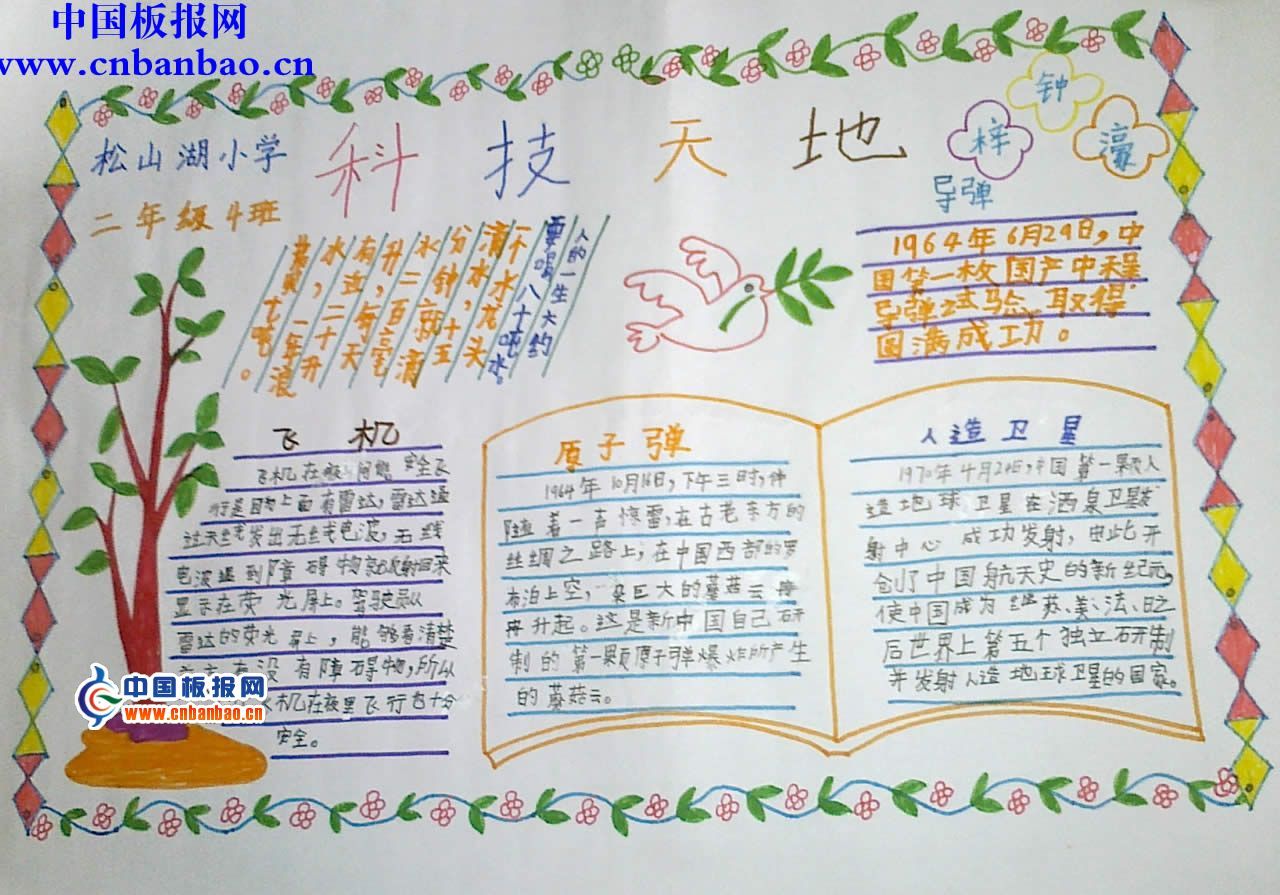 中国板报网
www.cnbanbao.cn
松山湖小学
二年级4班
科技天地
钟
梓
濠
人的一生大约
要喝八十吨水。
一个水龙头
滴水,十五
分钟就滴
水二百毫
升,每天
水,一年浪
费七吨。
导弹
1964年6月29日,中
国第一枚国产中程
导弹试验取得
圆满成功。
飞机
飞机在夜间能安全飞
行是因为上面有雷达,雷达通
过天线发出无线电波,无线
电波遇到障碍物就反射回来
显示在荧光屏上。驾驶员从
雷达的荧光屏上,能够看清楚
前方有没有障碍物,所以
机在夜里飞行也十分
安全。
原子弹
1964年10月16日,下午三时,伴
随着一声惊雷,在古老东方的
丝绸之路上,在中国西部的罗
布泊上空,一朵巨大的蘑菇云冉
冉升起。这是新中国自己研
制的第一颗原子弹爆炸所产生
的蘑菇云。
人造卫星
1970年4月24日,中国第一颗人
造地球卫星在酒泉卫星发
射中心成功发射,由此开
创了中国航天史的新纪元,
使中国成为继苏、美、法、日之
后世界上第五个独立研制
并发射人造地球卫星的国家。
中国板报网
www.cnbanbao.cn